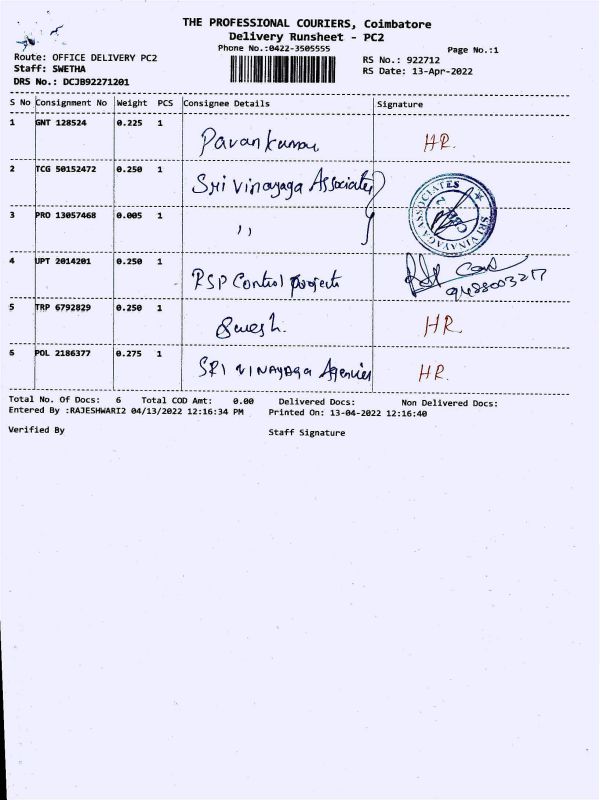 THE PROFESSIONAL COURIERS, Coimbatore
Delivery Runsheet - PC2
Phone No.:0422-3505555
Page No.:1
Route: OFFICE DELIVERY PC2
RS No.: 922712
Staff: SWETHA
RS Date: 13-Apr-2022
DRS No.: DCJB92271201
S No Consignment No Weight PCS Consignee Details Signature
1 GNT 128524 0.225 1 Pavankumar HR.
2 TCG 50152472 0.250 1 Sri Vinayaga Associates
SRI VINAYAGA ASSOCIATES
CBE
3 PRO 13057468 0.005 1 ,,
4 UPT 2014201 0.250 1 RSP Control projects
5 TRP 6792829 0.250 1 Suresh. HR
6 POL 2186377 0.275 1 SRI VINAYAGA Agencies HR.
Total No. Of Docs: 6 Total COD Amt: 0.00 Delivered Docs: Non Delivered Docs:
Entered By :RAJESHWARI2 04/13/2022 12:16:34 PM Printed On: 13-04-2022 12:16:40
Verified By Staff Signature